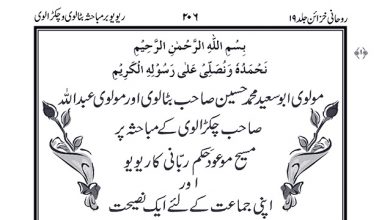 روحانی خزائن جلد ۱۹ ۲۰۶ ریویو بر مباحثہ بٹالوی و چکڑالوی
بِسْمِ اللّٰهِ الرَّحْمٰنِ الرَّحِيْمِ
نَحْمَدُهٗ وَنُصَلِّیْ عَلٰی رَسُوْلِهِ الْكَرِيْمِ
مولوی ابوسعید محمد حسین صاحب بٹالوی اور مولوی عبداللہ
صاحب چکڑالوی کے مباحثہ پر
مسیح موعود حَکم ربّانی کا ریویو
اور
اپنی جماعت کے لئے ایک نصیحت